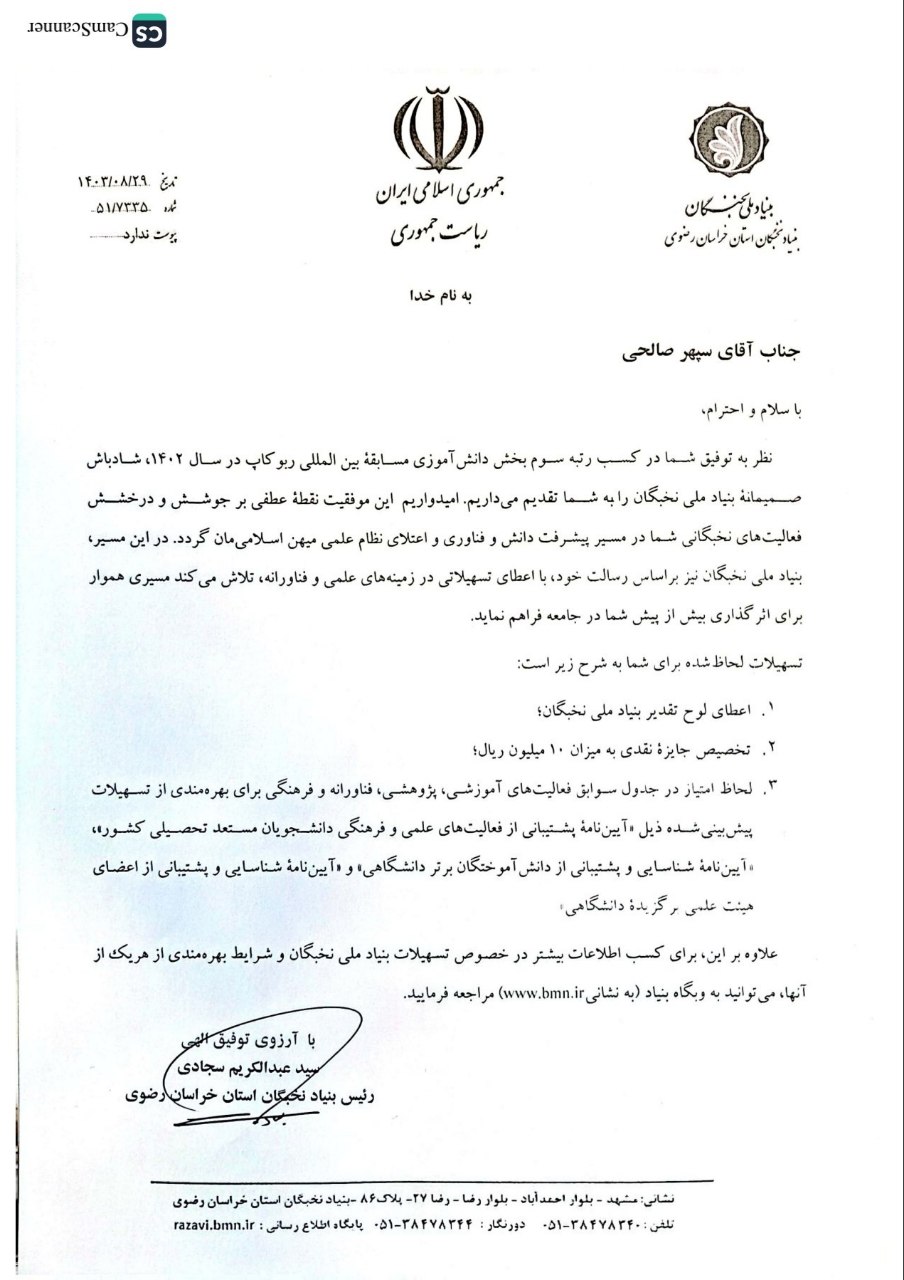 CamScanner
CS
بنیاد ملی نخبگان
بنیاد نخبگان استان خراسان رضوی
جمهوری اسلامی ایران
ریاست جمهوری
تاریخ ۱۴۰۳/۰۸/۲۹
شماره ۵۱/۷۳۳۵
پیوست ندارد
به نام خدا
جناب آقای سپهر صالحی
با سلام و احترام،
نظر به توفیق شما در کسب رتبه سوم بخش دانش‌آموزی مسابقۀ بین المللی ربوکاپ در سال ۱۴۰۲، شادباش
صمیمانۀ بنیاد ملی نخبگان را به شما تقدیم می‌داریم. امیدواریم این موفقیت نقطۀ عطفی بر جوشش و درخشش
فعالیت‌های نخبگانی شما در مسیر پیشرفت دانش و فناوری و اعتلای نظام علمی میهن اسلامی‌مان گردد. در این مسیر،
بنیاد ملی نخبگان نیز براساس رسالت خود، با اعطای تسهیلاتی در زمینه‌های علمی و فناورانه، تلاش می‌کند مسیری هموار
برای اثرگذاری بیش از پیش شما در جامعه فراهم نماید.
تسهیلات لحاظ‌شده برای شما به شرح زیر است:
۱. اعطای لوح تقدیر بنیاد ملی نخبگان؛
۲. تخصیص جایزۀ نقدی به میزان ۱۰ میلیون ریال؛
۳. لحاظ امتیاز در جدول سوابق فعالیت‌های آموزشی، پژوهشی، فناورانه و فرهنگی برای بهره‌مندی از تسهیلات
پیش‌بینی‌شده ذیل «آیین‌نامۀ پشتیبانی از فعالیت‌های علمی و فرهنگی دانشجویان مستعد تحصیلی کشور»،
«آیین‌نامۀ شناسایی و پشتیبانی از دانش‌آموختگان برتر دانشگاهی» و «آیین‌نامۀ شناسایی و پشتیبانی از اعضای
هیئت علمی برگزیدۀ دانشگاهی»
علاوه بر این، برای کسب اطلاعات بیشتر در خصوص تسهیلات بنیاد ملی نخبگان و شرایط بهره‌مندی از هریک از
آنها، می‌توانید به وبگاه بنیاد (به نشانی www.bmn.ir) مراجعه فرمایید.
با آرزوی توفیق الهی
سید عبدالکریم سجادی
رئیس بنیاد نخبگان استان خراسان رضوی
نشانی: مشهد - بلوار احمدآباد - بلوار رضا - رضا ۲۷- پلاک۸۶ -بنیاد نخبگان استان خراسان رضوی
تلفن: ۰۵۱-۳۸۴۷۸۳۴۰ دورنگار: ۰۵۱-۳۸۴۷۸۳۴۴ پایگاه اطلاع رسانی: razavi.bmn.ir